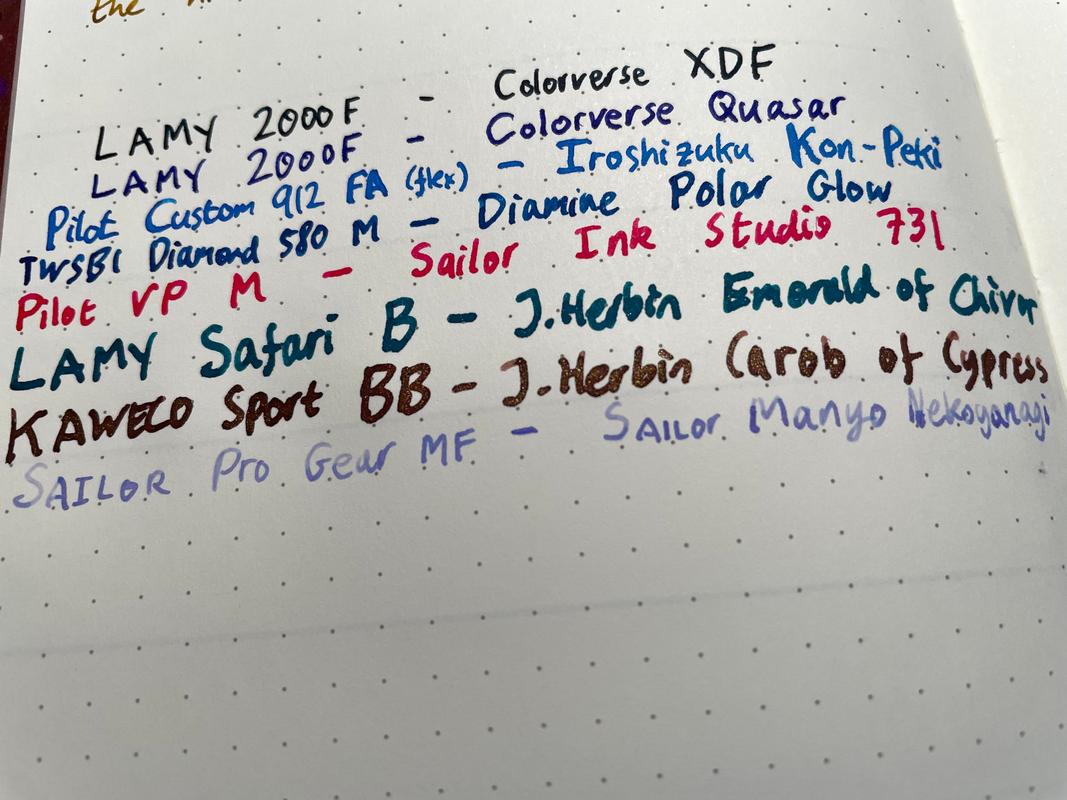 the
LAMY 2000F - Colorverse XDF
LAMY 2000F - Colorverse Quasar
Pilot Custom 912 FA (flex) - Iroshizuku Kon-Peki
TWSBI Diamond 580 M - Diamine Polar Glow
Pilot VP M - Sailor Ink Studio 731
LAMY Safari B - J.Herbin Emerald of Chivor
KAWECO Sport BB - J.Herbin Carob of Cypress
SAILOR Pro Gear MF - SAILOR Manyo Nekoyanagi